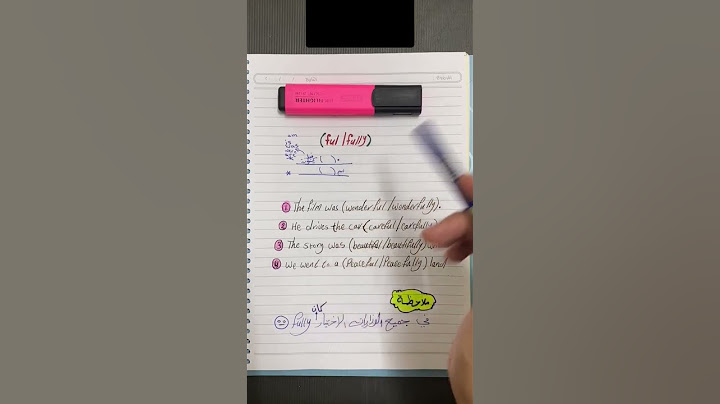 (ful/fully)
am
is
was
( ).
* ( )
① The film was (wonderful/wonderfully).
② He drives the car (careful/carefully)
③ The story was (beautiful/beautifully)
④ we went to a (Peaceful/Peacefully) land
ملاحظة
في جميع الوزاريات الاختيار كان fully